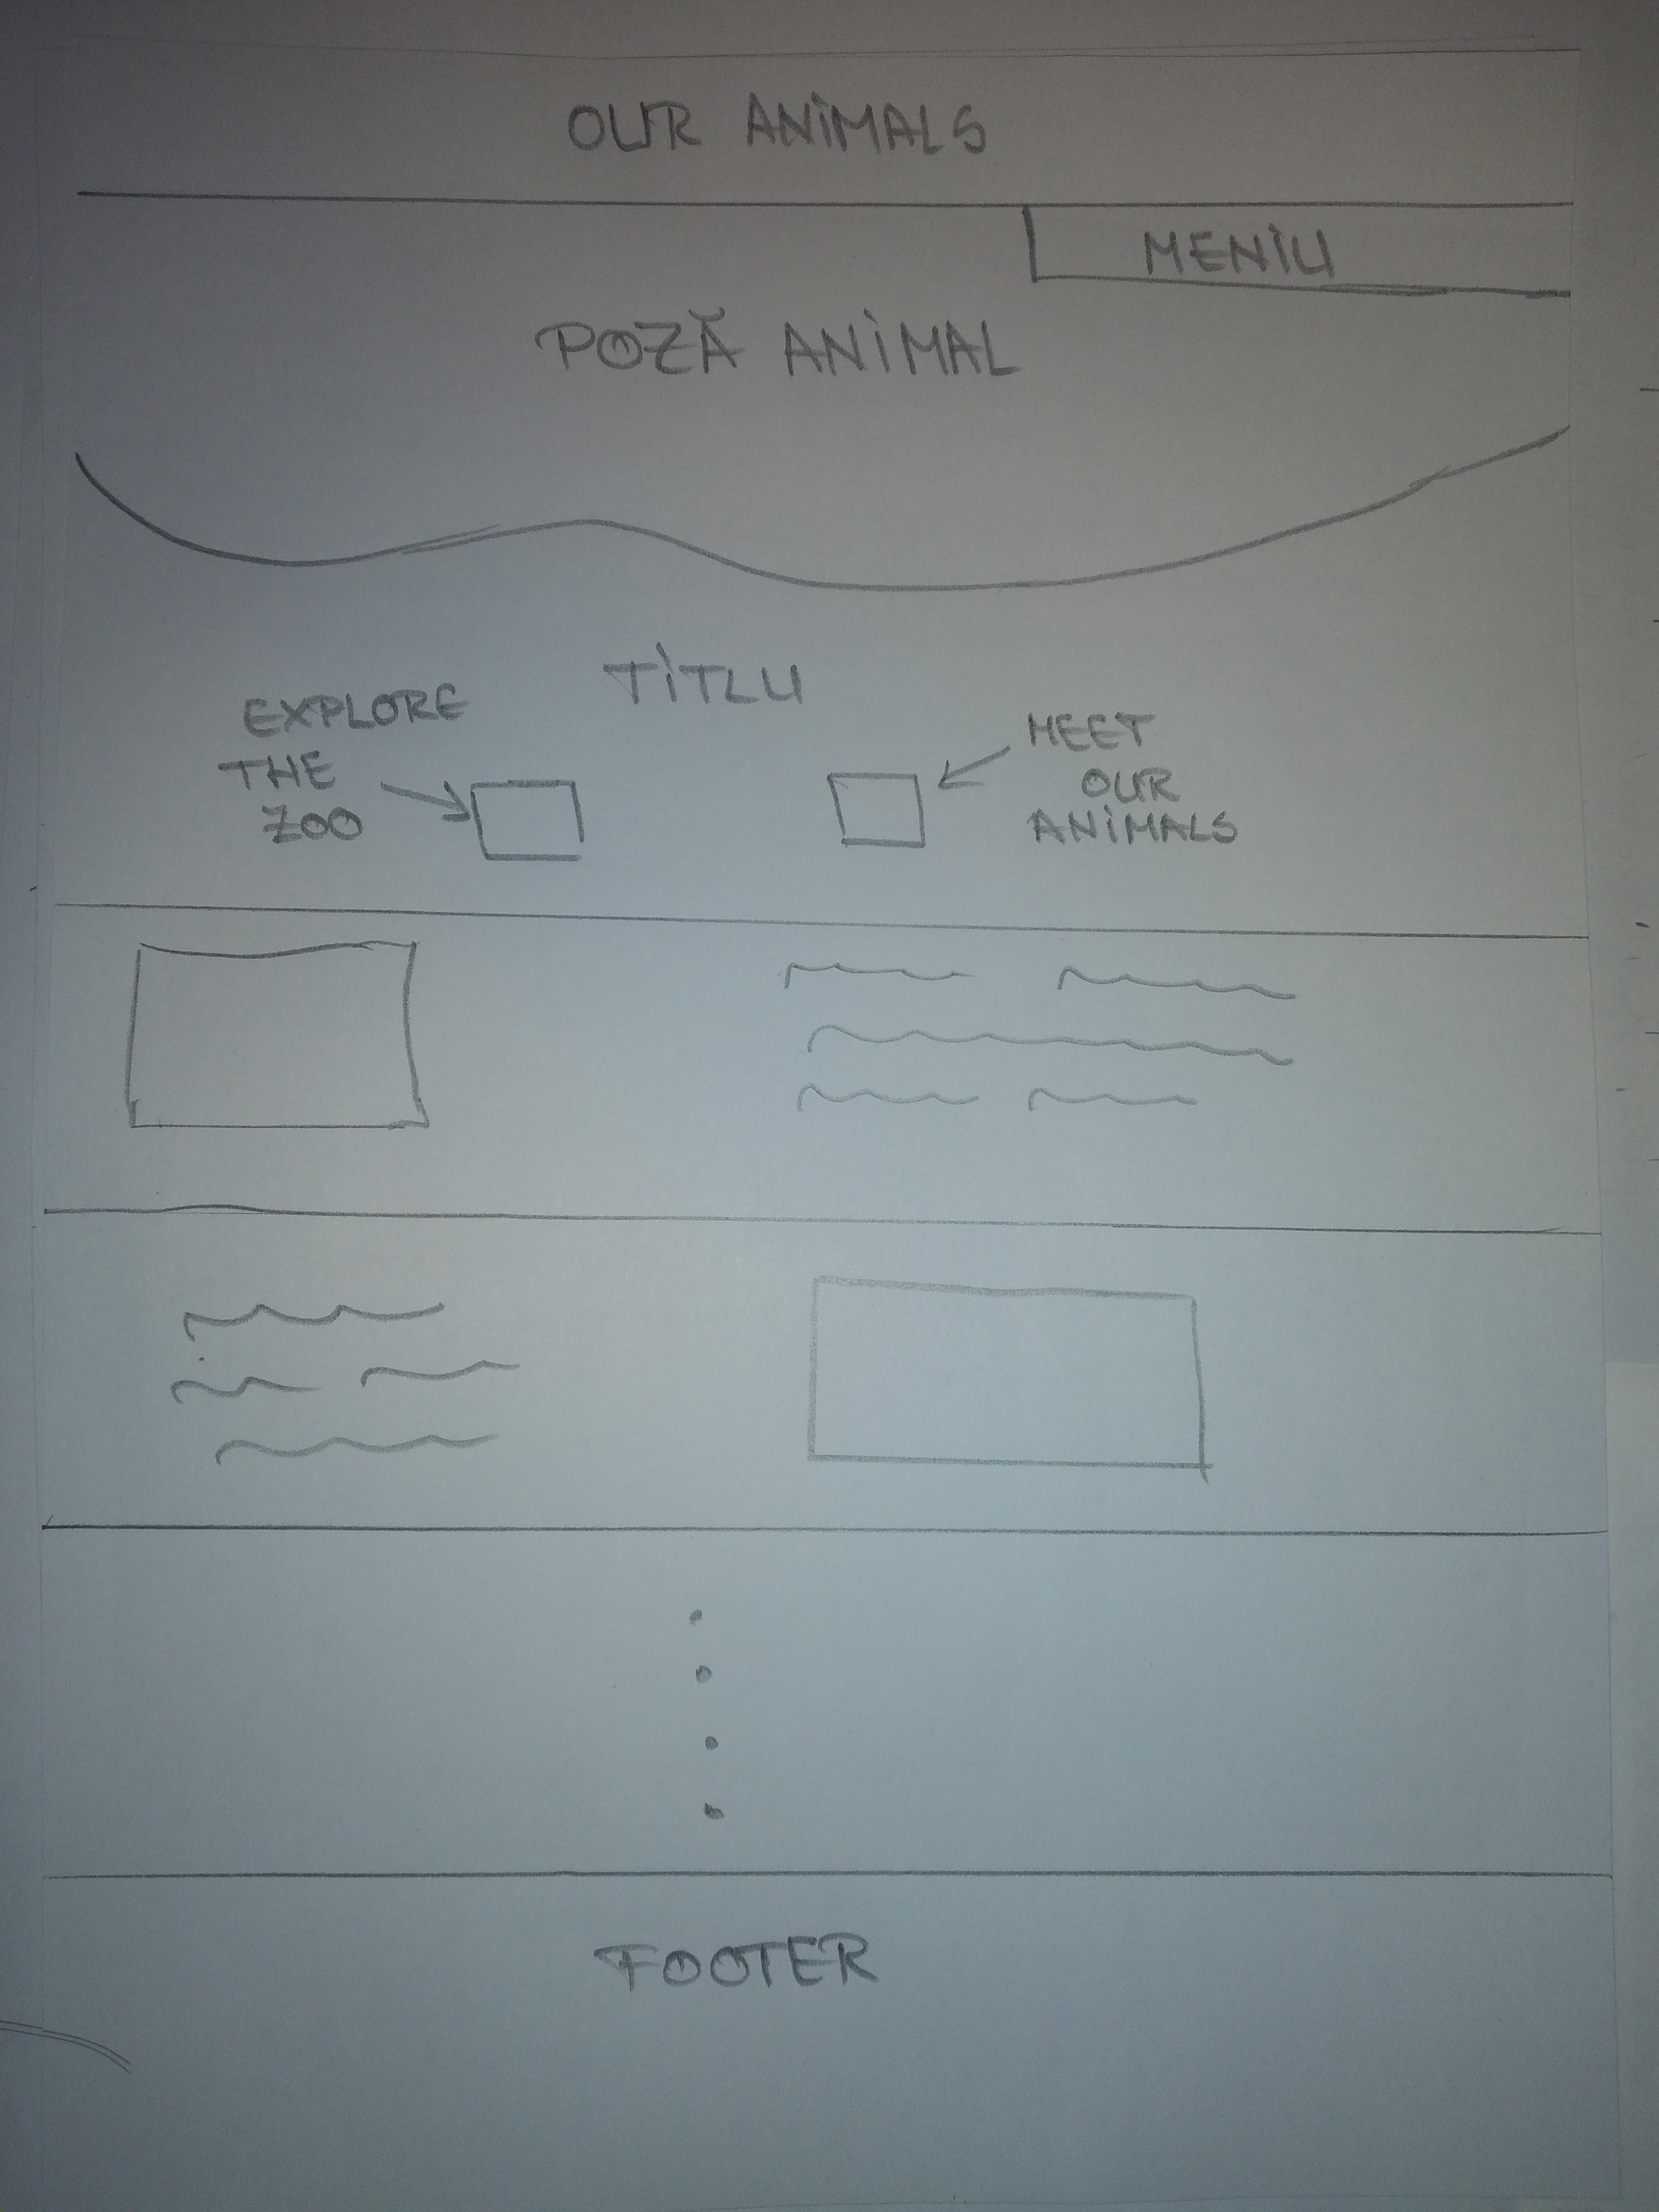 OUR ANIMALS
MENIU
POZĂ ANIMAL
TITLU
EXPLORE
THE
ZOO
MEET
OUR
ANIMALS
FOOTER